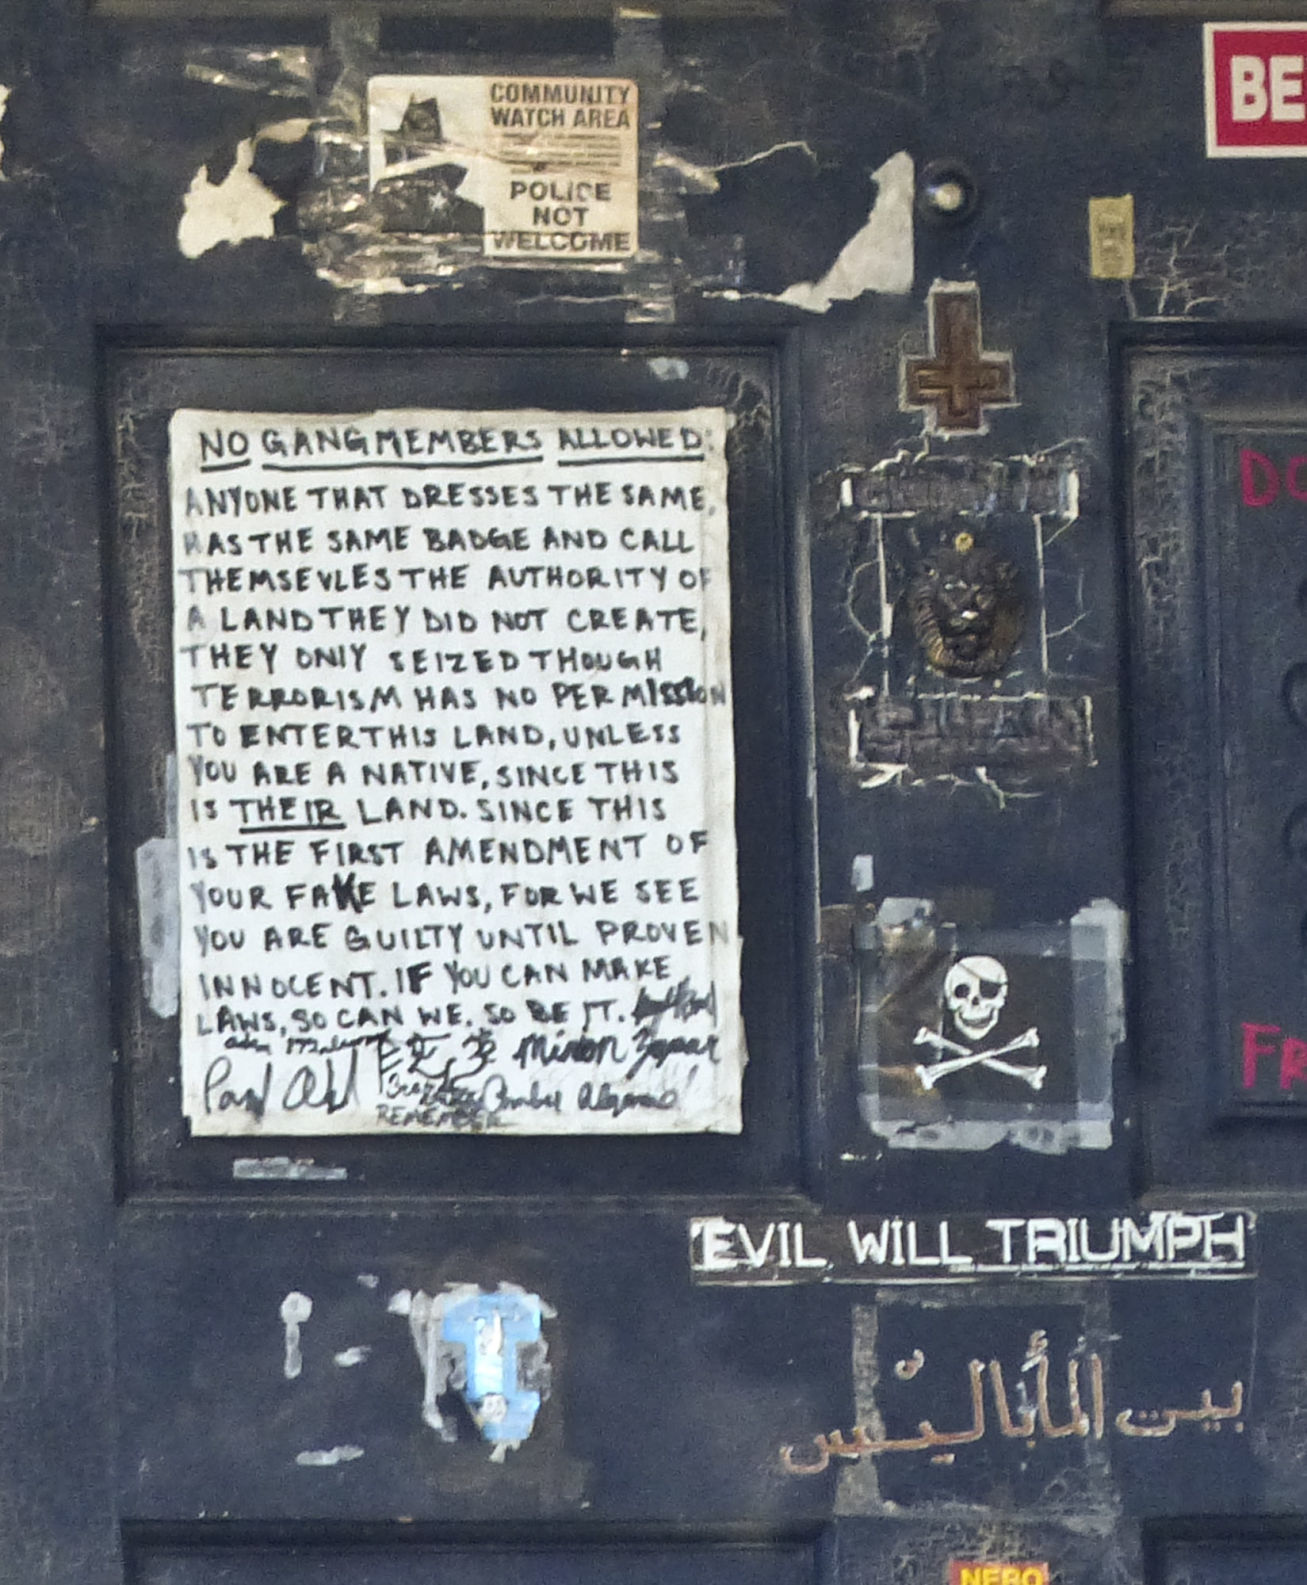 COMMUNITY
WATCH AREA
POLICE
NOT
WELCOME
BE
NO GANGMEMBERS ALLOWED:
ANYONE THAT DRESSES THE SAME,
HAS THE SAME BADGE AND CALL
THEMSEVLES THE AUTHORITY OF
A LAND THEY DID NOT CREATE,
THEY ONLY SEIZED THOUGH
TERRORISM HAS NO PERMISSION
TO ENTER THIS LAND, UNLESS
YOU ARE A NATIVE, SINCE THIS
IS THEIR LAND. SINCE THIS
IS THE FIRST AMENDMENT OF
YOUR FAKE LAWS, FOR WE SEE
YOU ARE GUILTY UNTIL PROVEN
INNOCENT. IF YOU CAN MAKE
LAWS, SO CAN WE. SO BE IT.
REMEMBER
DO
FR
EVIL WILL TRIUMPH
NERO